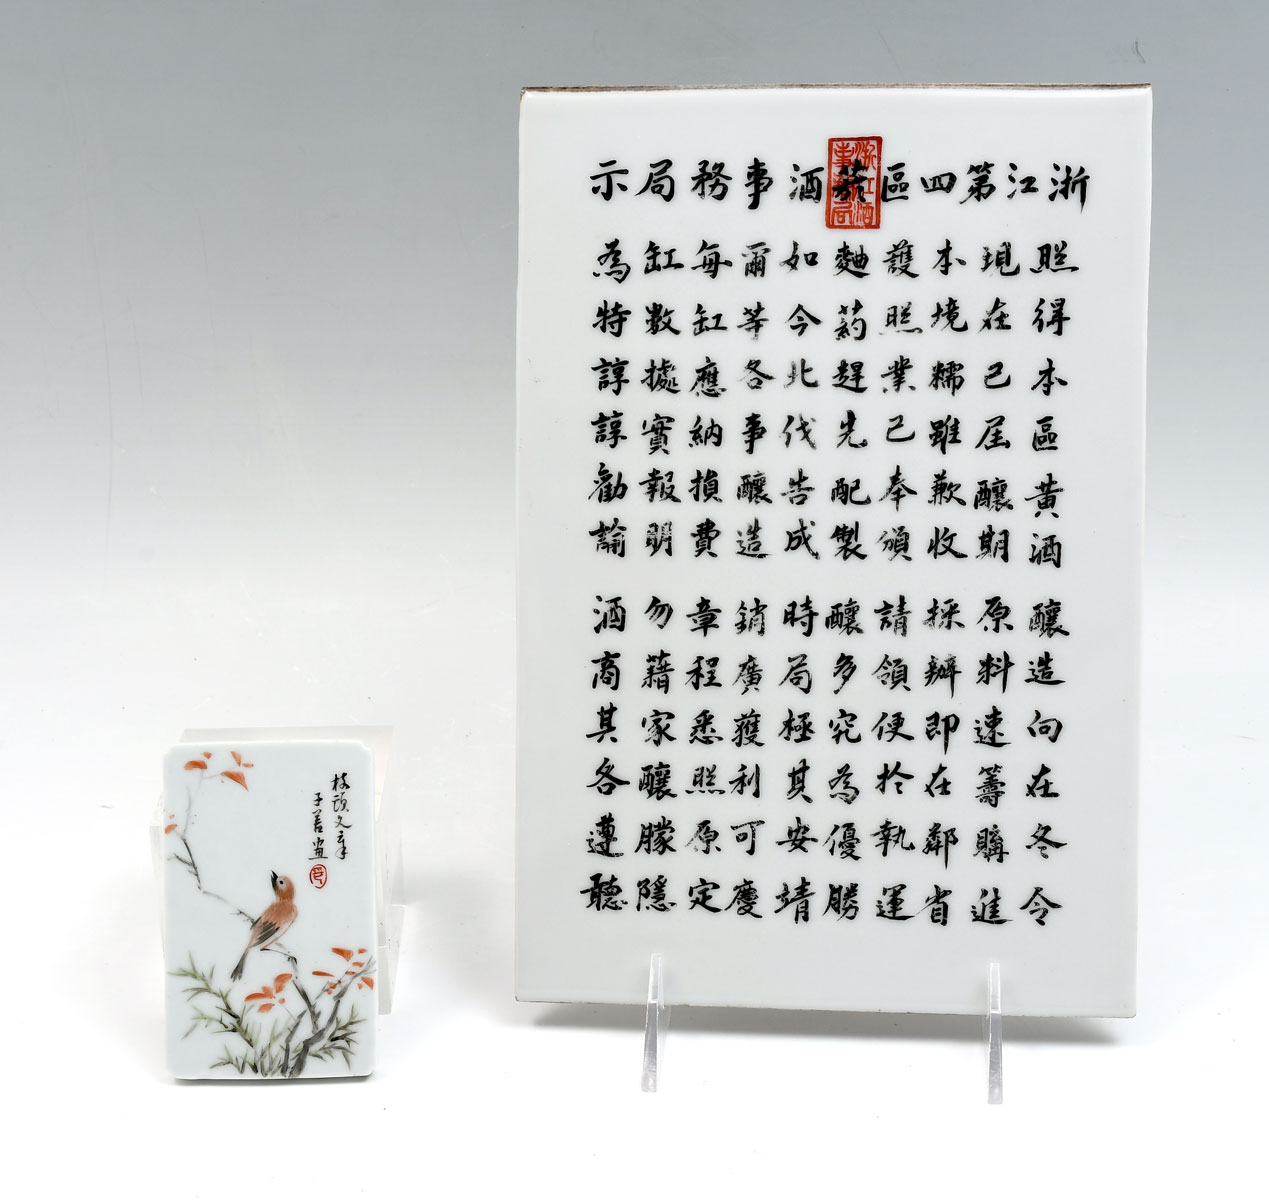 浙江第四區菸酒事務局示
照得本區黃酒 釀造向在冬令
現在已屆釀期 原料速籌購進
本境糯雖歉收 採辦即在鄰省
護照業已奉頒 請領便於執運
麯药趕先配製 釀多究為優勝
如今北伐告成 時局極其安靖
爾等各事釀造 銷廣獲利可慶
每缸應納損費 章程悉照原定
缸數據實報明 勿藉家釀朦隱
為特諄諄勸諭 酒商其各遵聽
枝頭文章
子善畫